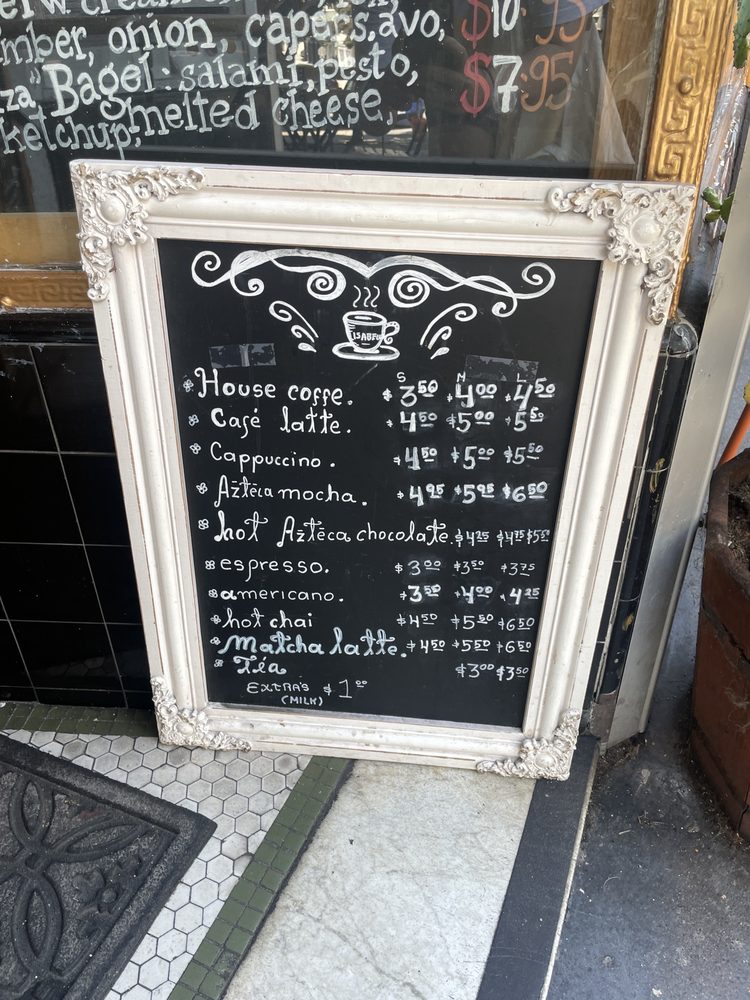 $10.95
mber, onion, capers, avo,
za, Bagel: salami, pesto, $7.95
ketchup, melted cheese,
ISABEL
S M L
House coffe. $3.50 $4.00 $4.50
Café latte. $4.50 $5.00 $5.50
Cappuccino. $4.50 $5.00 $5.50
Azteca mocha. $4.95 $5.95 $6.50
hot Azteca chocolate. $4.25 $4.75 $5.50
espresso. $3.00 $3.50 $3.75
americano. $3.50 $4.00 $4.25
hot chai $4.50 $5.50 $6.50
Matcha latte. $4.50 $5.50 $6.50
Tea $3.00 $3.50
EXTRAS $1.00
(MILK)